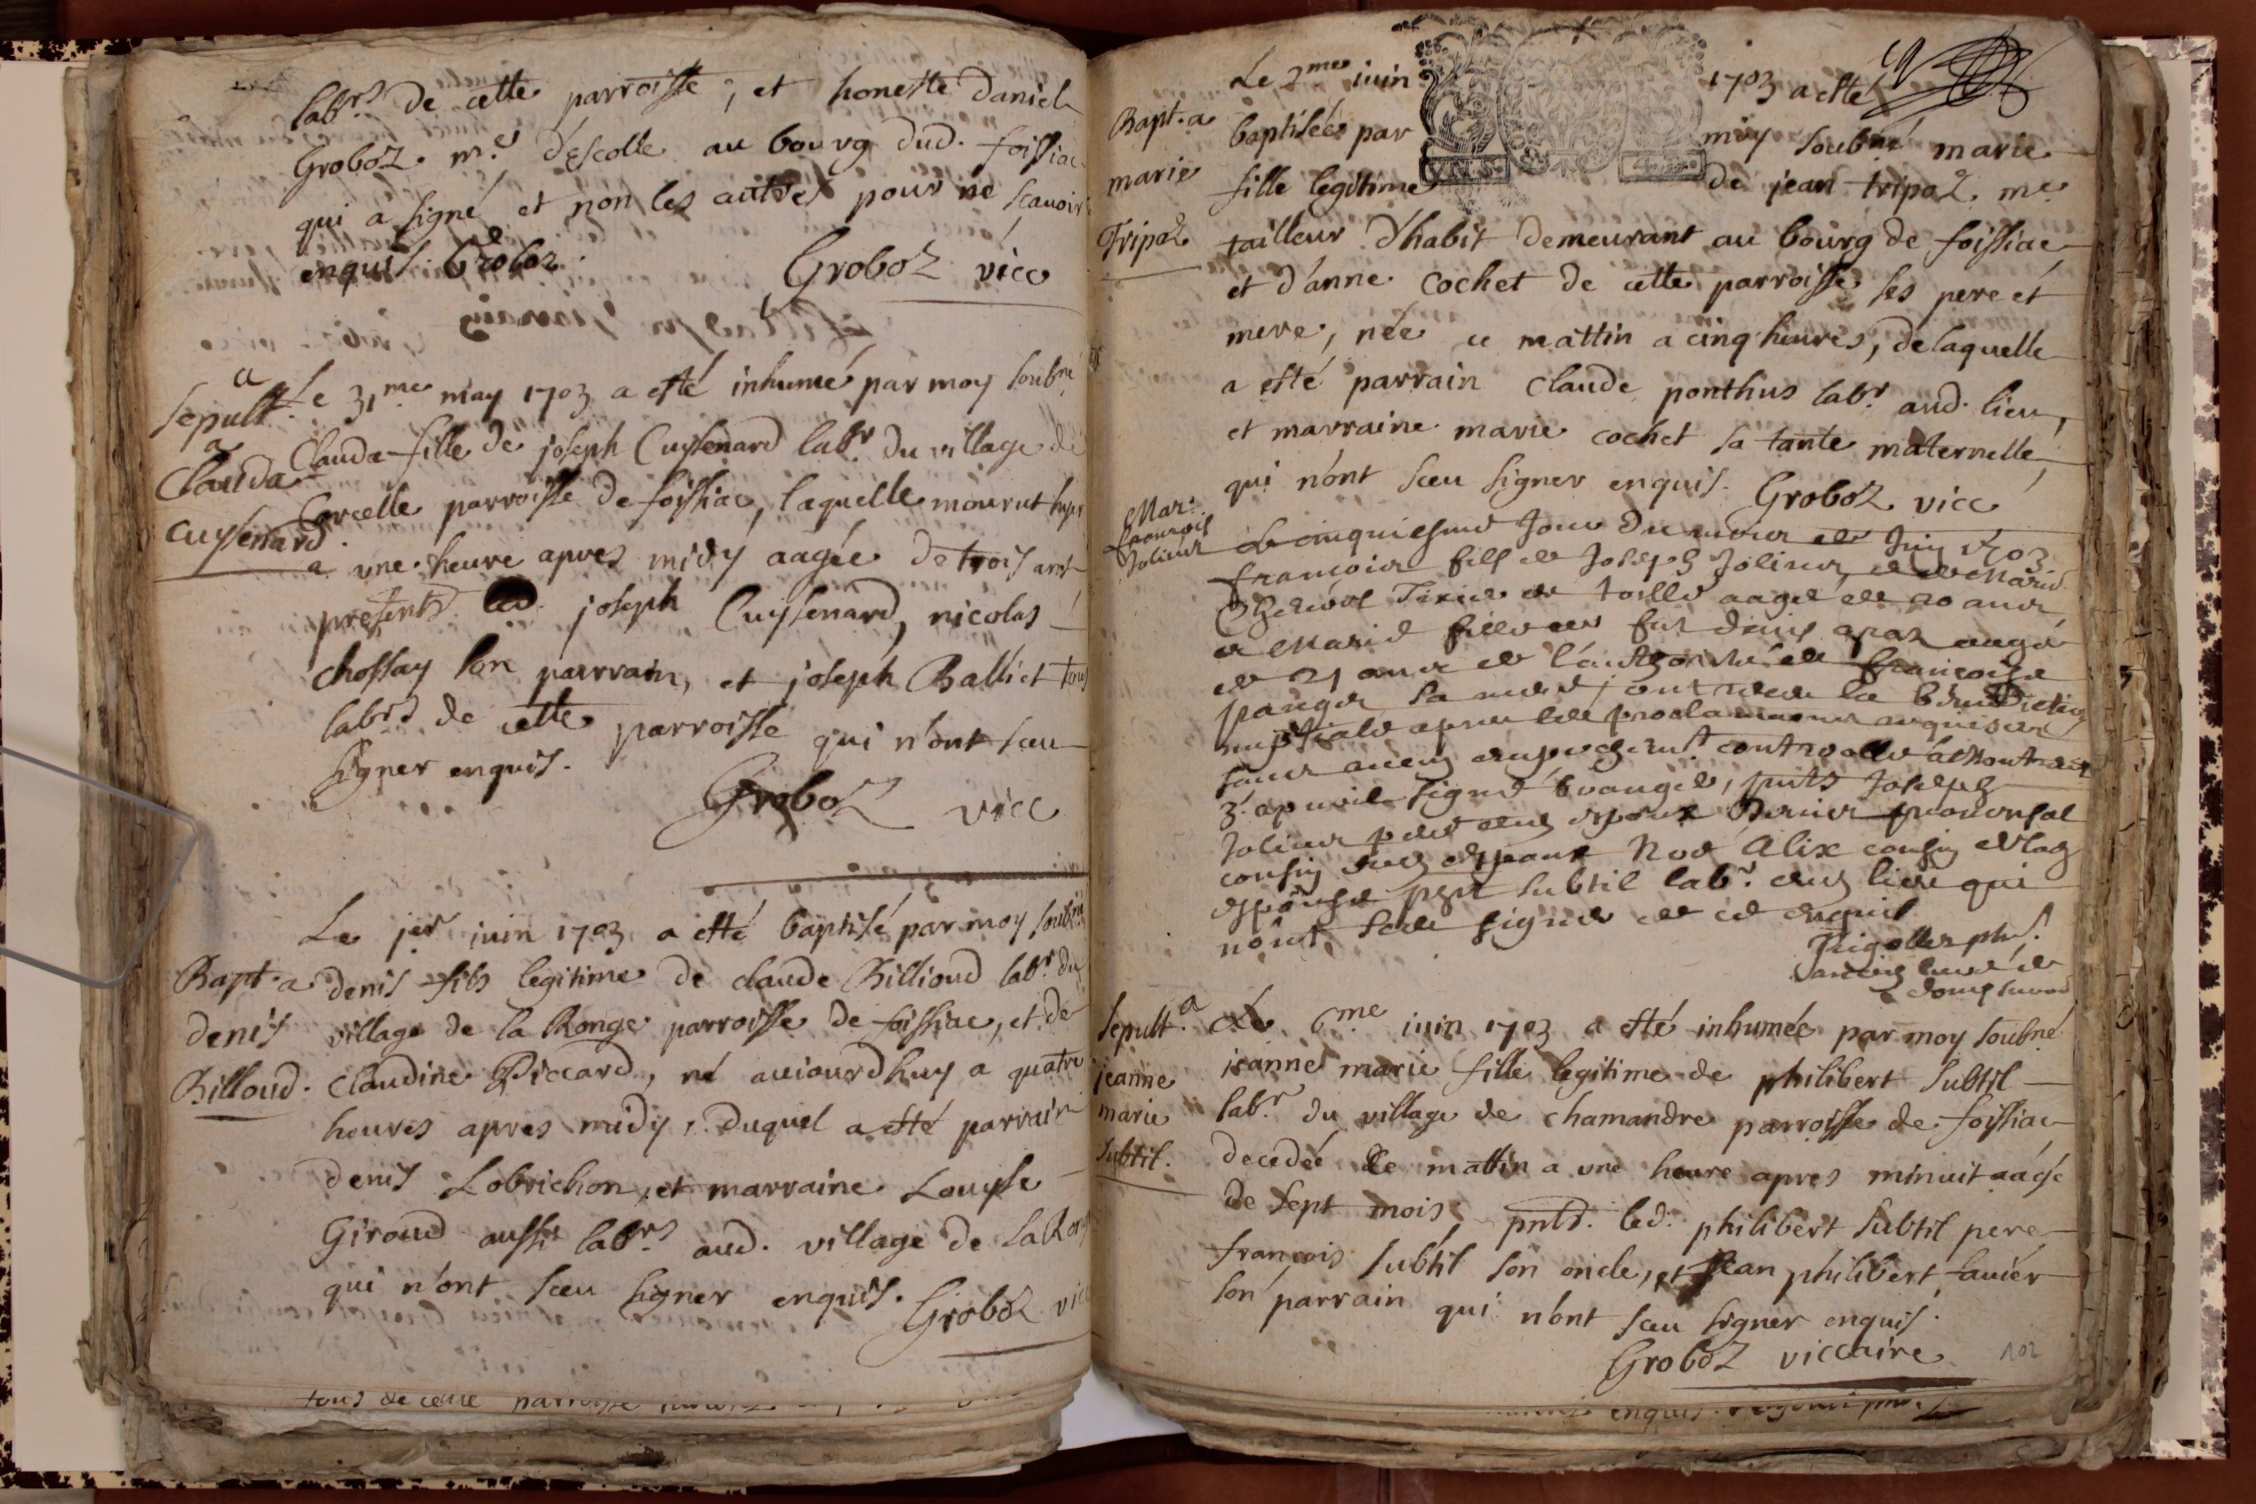 labrs de cette parroisse, et honeste daniel
Groboz me d'escolle au bourg dud. foissiac
qui a signé et non les autres pour ne scauoir
enquis. Groboz.
Groboz vicc
Sepult. a
Clauda
Cuysenard.
Le 31me may 1703 a esté inhumé par moy soubné
Clauda fille de joseph Cuysenard labr du village de
Corcelle parroisse de foissiac, laquelle mourut hyer
a une heure apres midy aagée de trois ans
presents led. joseph Cuysenard, nicolas
chossay son parrain, et joseph Balliet tous
labrs de cette parroisse qui n'ont sceu
signer enquis.
Groboz vicc
Bapt. a
denis
Billoud.
Le jer iuin 1703 a esté baptisé par moy soubné
denis fils legitime de claude Billioud labr du
village de la Ronge parroisse de foissiac, et de
claudine Piccard, né auiourdhuy a quatre
heures apres midy, duquel a esté parrain
denis Lobrichon, et marraine Louyse
Giroud aussi labrs aud. village de la Ron
qui n'ont sceu signer enquis. Groboz vicc
tous de cette parroisse
Bapt. a
marie
Tripoz
Le 2me iuin 1703 a esté
baptisée par moy soubné marie
fille legitime de jean tripoz me
tailleur d'habit demeurant au bourg de foissiac
et d'anne cochet de cette parroisse ses pere et
mere, née ce mattin a cinq heures, de laquelle
a esté parrain claude ponthus labr aud. lieu,
et marraine marie cochet sa tante maternelle,
qui n'ont sceu signer enquis. Groboz vicc
Mar:
francois
Jolieur
Le cinquiesme Jour du mois de Juin 1703
francois fils de Joseph Jolieur et de Marie
Tixier de toille aagé de 20 ans
et Marie fille de fut denis aagé
de 21 ans de l'authorité de francoise
pauget sa mere, ont receu la benediction
nuptiale apres les proclamations requises
sans aucun empechement controolle
3. apuril signé Evangile, pnts Joseph
Jolieur pere dud espoux prouensal
cousin dud espoux Noe Alix cousin de lad
espouse pbt subtil labr dud lieu qui
n'ont sceu signer de ce enquis
Sepult. a
jeanne
marie
subtil.
Le 6me iuin 1703 a esté inhumée par moy soubné
jeanne marie fille legitime de philibert subtil
labr du village de chamandre parroisse de foissiac
decedée le mattin a une heure apres minuit aagé
de sept mois, pnts. led. philibert subtil pere
francois subtil son oncle, et jean philibert fauier
son parrain qui n'ont sceu signer enquis.
Groboz viccaire
102
enquis.